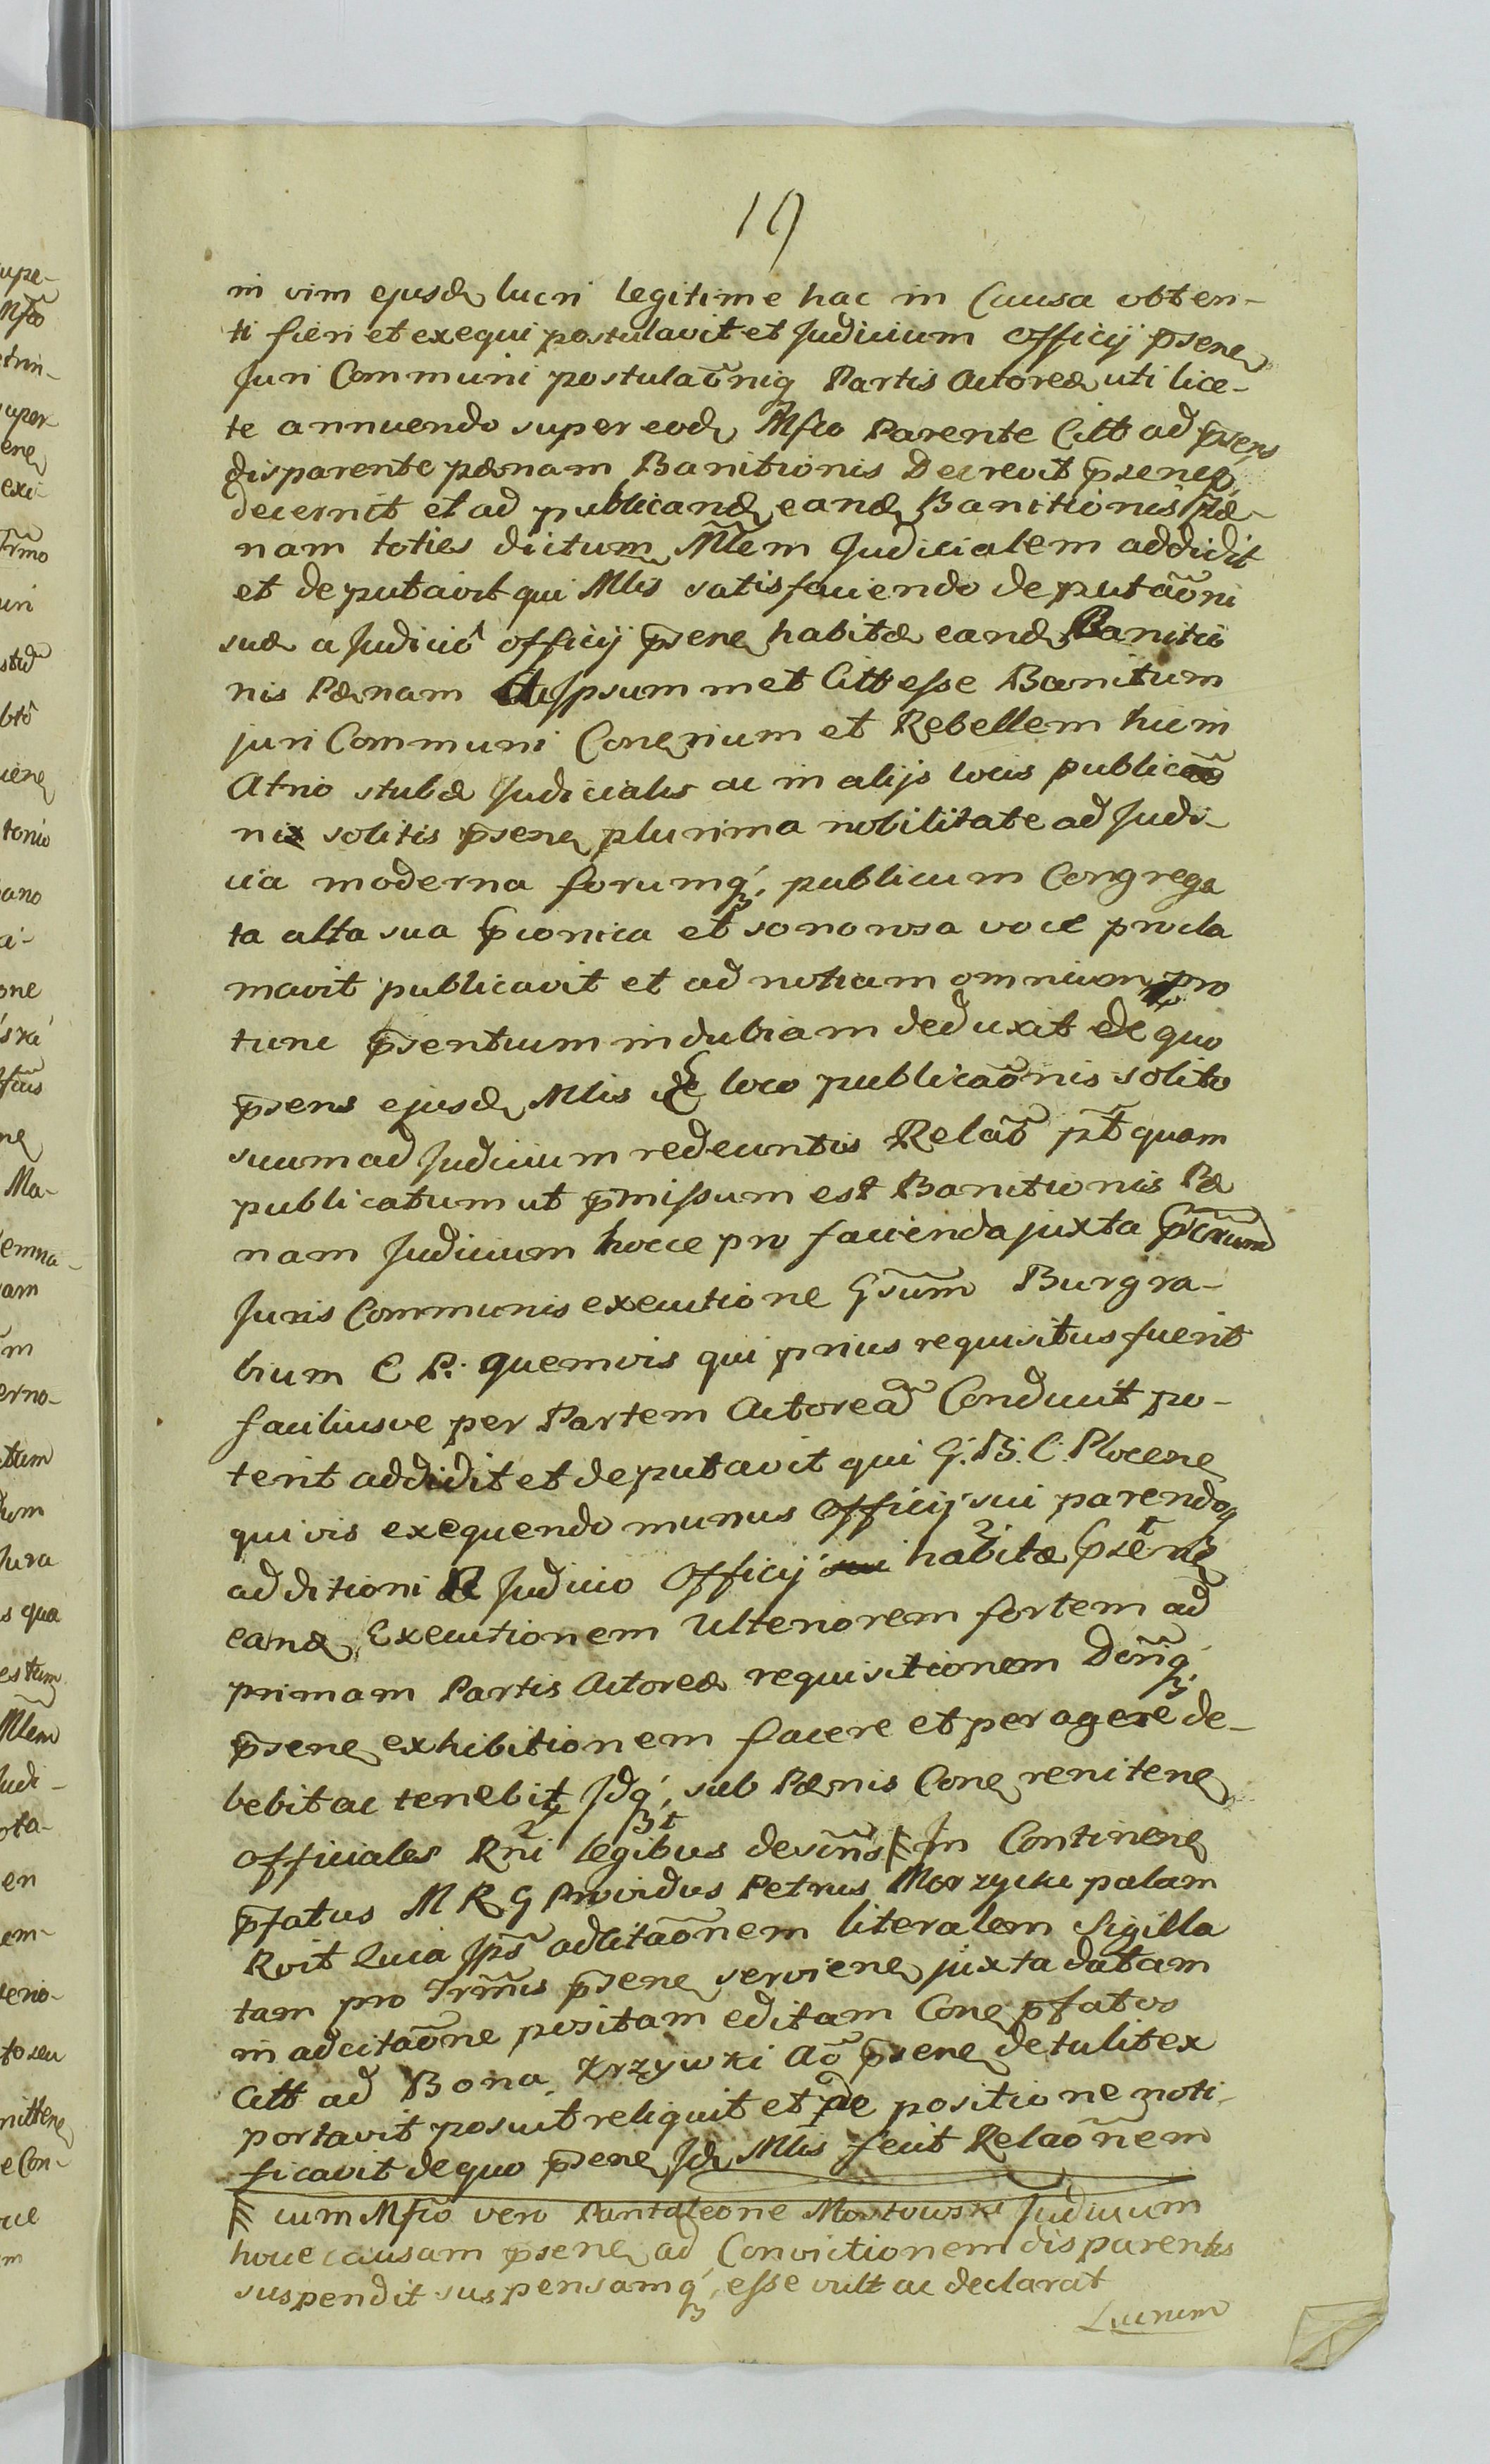 19
in vim ejusd lucri legitime hac in Causa obten-
ti fieri et exequi postulavit et Judicium officij psens
Juri Communi postulaõniq Partis Actoreæ uti lice-
te annuendo super eod Mfco Parente Citt ad psens
disparente pænam Banitionis Decrevit psensq
decernit et ad publicand eand Banitionis Pæ-
nam toties dictum Mlem Judicialem addidit
et deputavit qui Mlis satisfaciendo deputaõni
suæ a Judiciô officij psens habitæ eand Banitio
nis Pænam Ipsummet Citt esse Banitum
juri Communi Conrium et Rebellem hic in
Atrio stubæ Judicialis ac in alijs locis publicaõ
nis solitis psens plurima nobilitate ad Judi-
cia moderna forumq́, publicum Congrega
ta alta sua pconica et sonorosa voce procla
mavit publicavit et ad notiam omnium pro
tunc psentium indubiam deduxit de quo
psens ejusd Mlis de loco publicaõnis solito
suum ad Judicium redeuntis Relaõ pt quam
publicatum ut pmissum est Banitionis Pæ
nam Judicium hocce pro facienda juxta pscrum
Juris Communis executione Gsum Burgra-
bium C P: quemvis qui prius requisitus fuerit
faciliusve per Partem Actoreã Conduci po-
terit addidit et deputavit qui G. B. C. Plocens
quivis exequendo munus Officij sui parendoq
additioni a Judicio Officij sui habitæ psens
eand Executionem Ulteriorem fortem ad
primam Partis Actoreæ requisitionem Dõniq́,
psens exhibitionem facere et peragere de-
bebit ac tenebit Idq́, sub Pænis Con renitens
officiales Rni legibus descriis In Continens
pfatus M R G Providus Petrus Morzycki palam
Rvit quia Ips adcitaõnem literalem Sigilla
tam pro Trmis psens serviens juxta datam
in adcitaõne positam editam Con pfatos
Citt ad Bona Krzywki Aõ psens detulit ex
portavit posuit reliquit et de positione noti-
ficavit de quo psens Id Mlis fecit Relaõnem
cum Mfco vero Pantaleone Mostowski Judicium
hocce causam psens ad Convictionem disparentis
suspendit suspensamq́, esse vult ac declarat
Lucrum